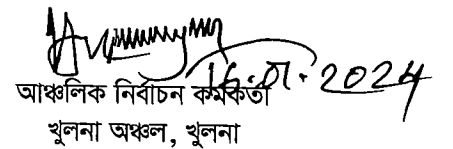 16.01.2024
আঞ্চলিক নির্বাচন কর্মকর্তা
খুলনা অঞ্চল, খুলনা